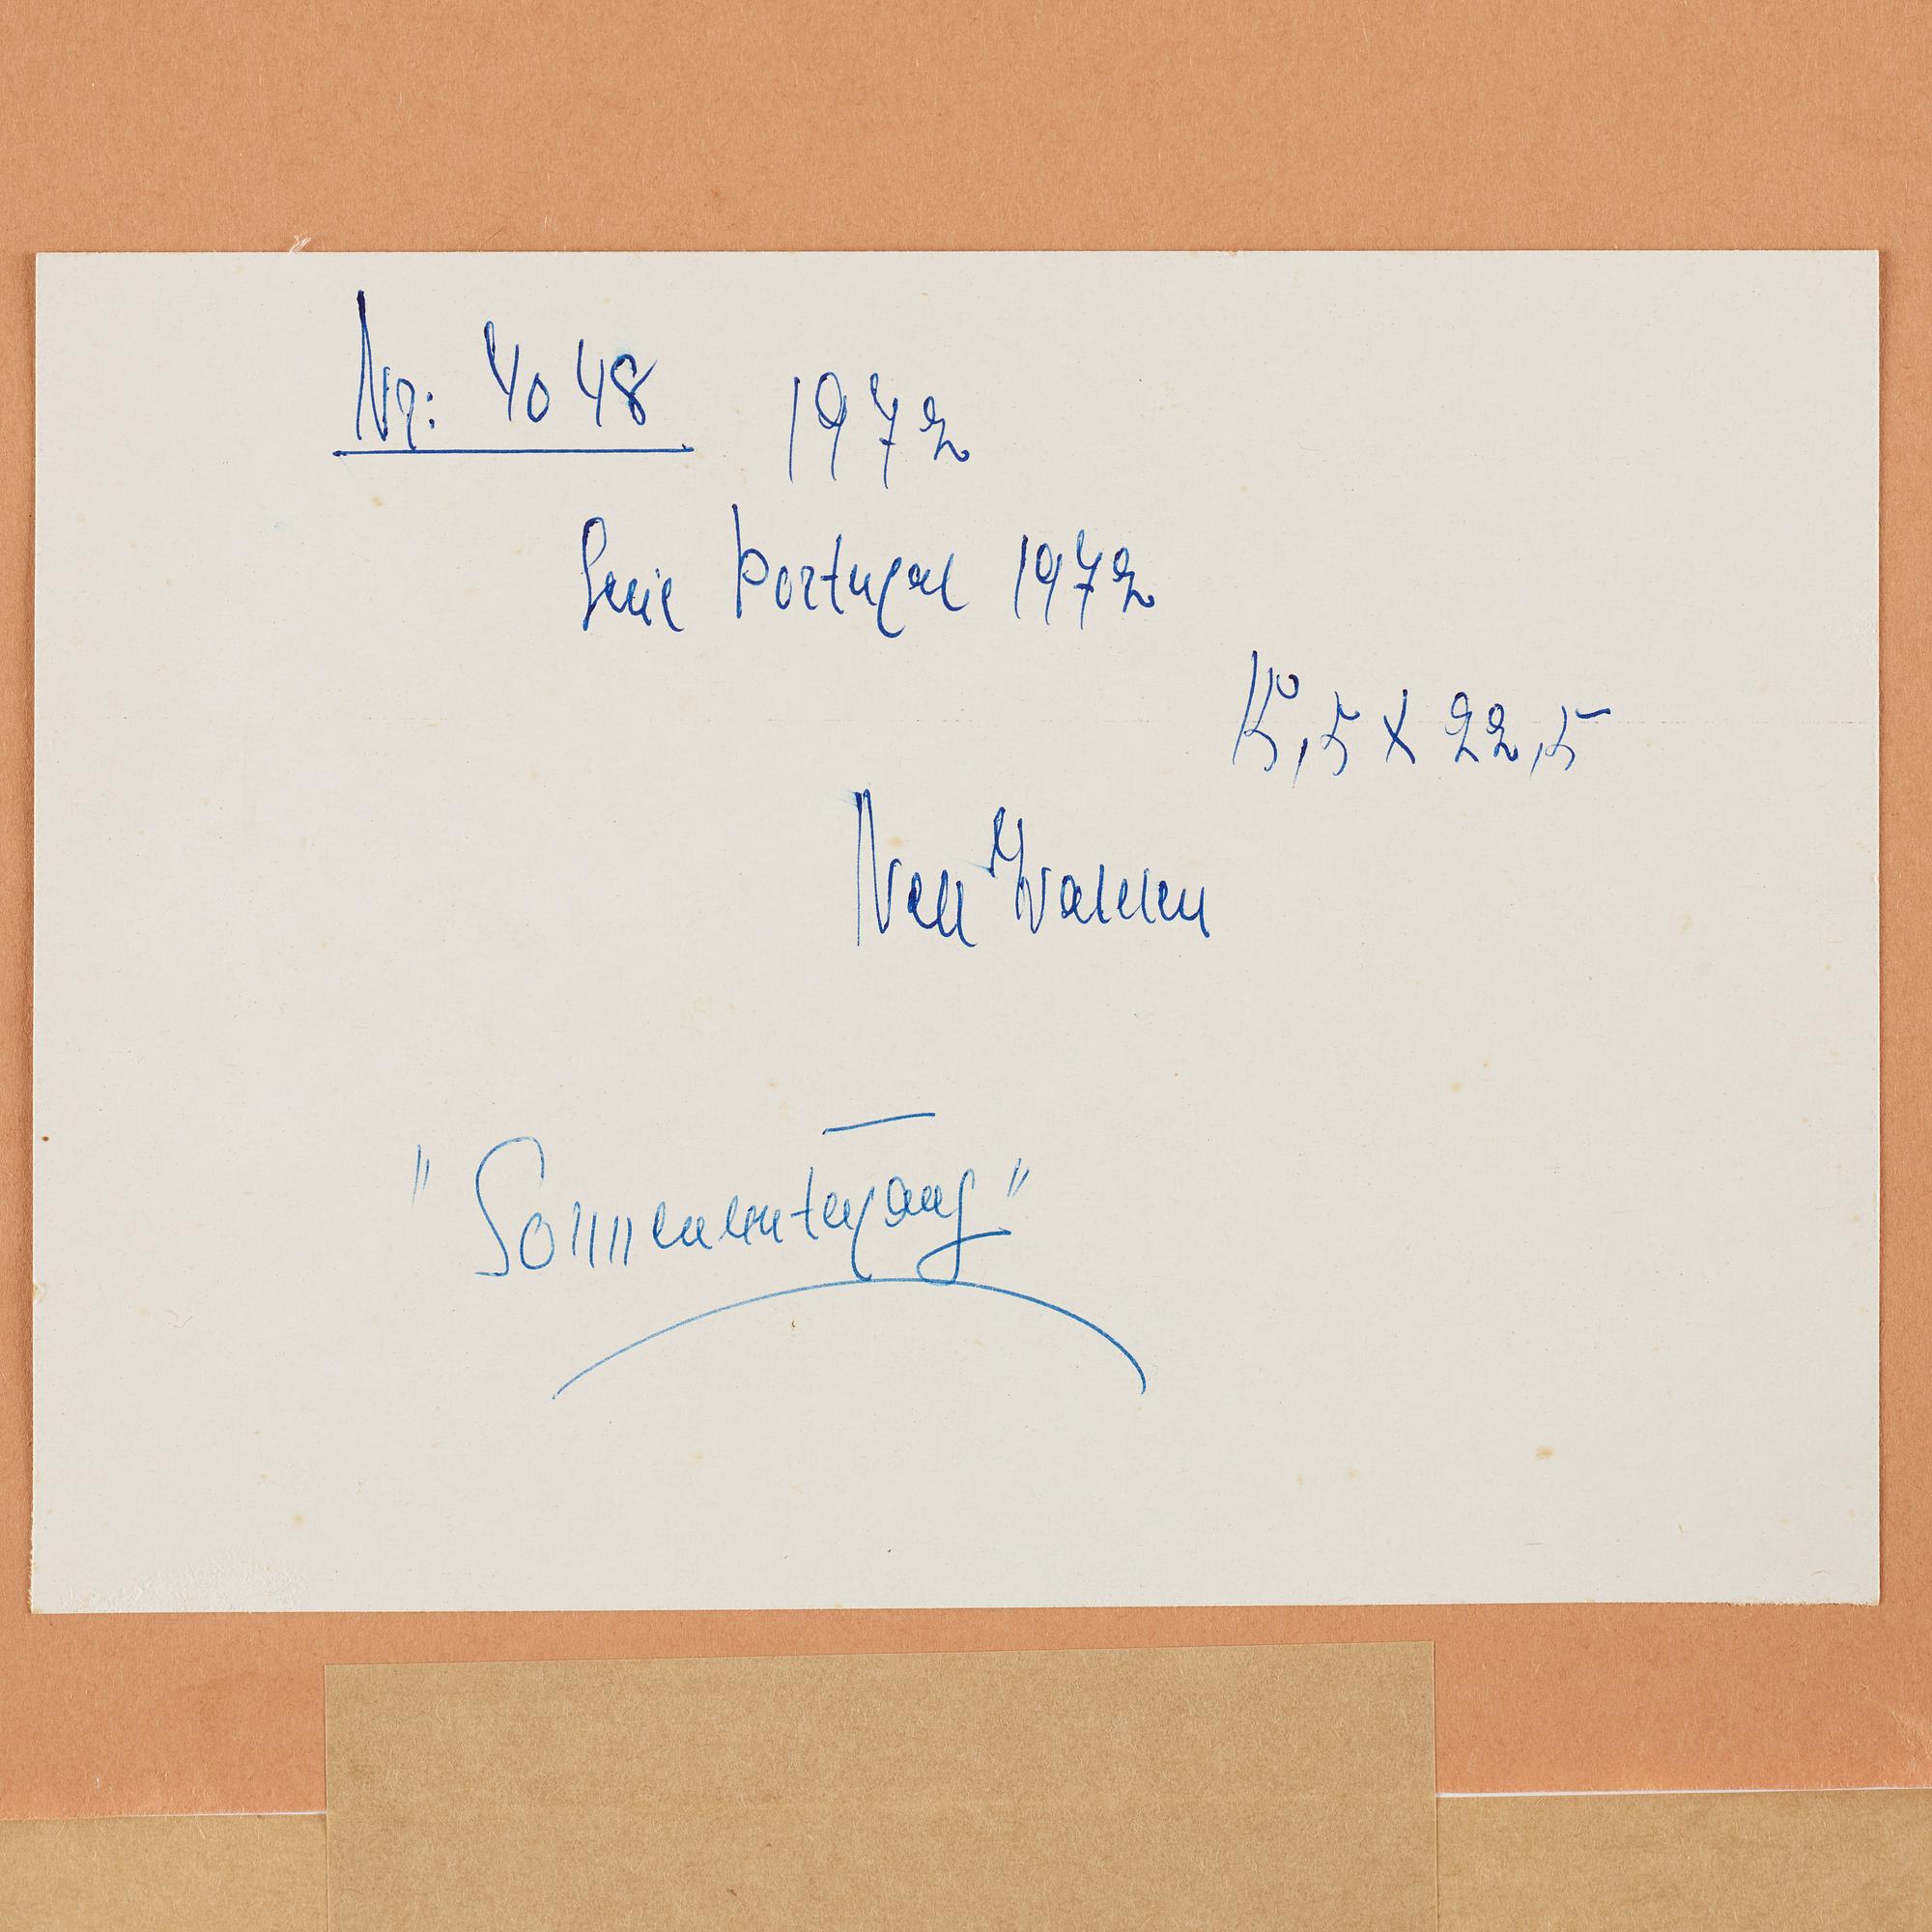 Nr: 4048 1972
Serie Portugal 1972
15,5 x 22,5
Nell Walden
"Sonnenuntergang"